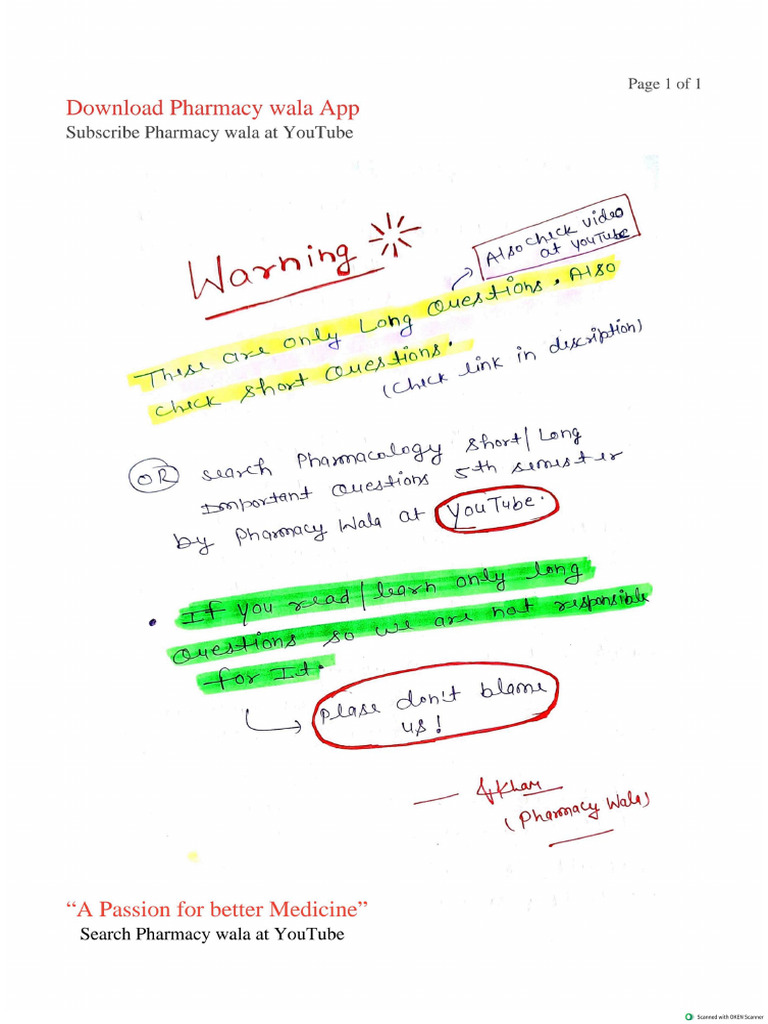 Page 1 of 1
Download Pharmacy wala App
Subscribe Pharmacy wala at YouTube
Warning
Also check video
at YouTube
These are only Long Questions. Also
check short Questions.
(check link in description)
OR search Pharmacology short/Long
Important Questions 5th semester
by Pharmacy Wala at YouTube.
• If you read/learn only long
Questions so we are not responsible
for It.
Plase don't blame
us!
(Pharmacy Wala)
“A Passion for better Medicine”
Search Pharmacy wala at YouTube
Scanned with OKEN Scanner